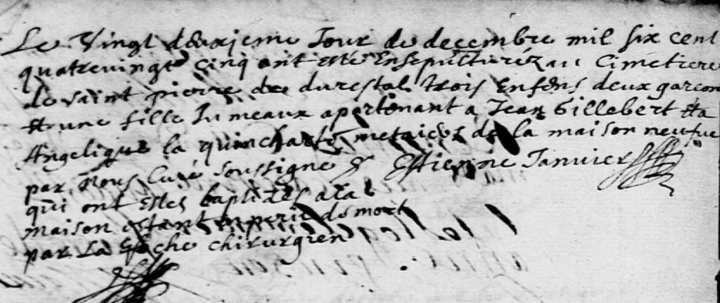 Le Vingt deuxieme Jour de decembre mil six cent
quatrevingt cinq ont esté Ensepulturéz au Cimetiere
de saint pierre de durestal trois Enfens deux garcon
et une fille Jumeaux apartenant a Jean Gillebert et a
Angelique la quincharte metaiers de la maison neufue
par Nous Curé soussigné Estienne Janvier
qui ont estes baptises a la
maison estant en peril de mort
par La chirurgien